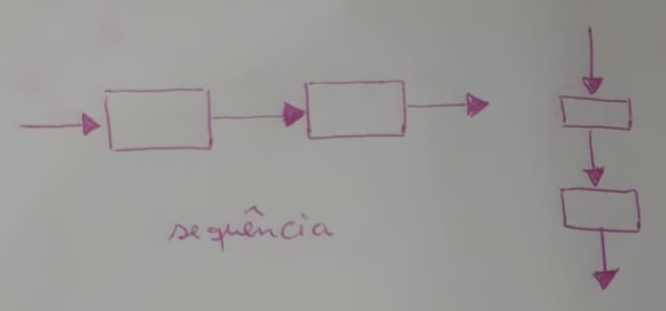 sequência